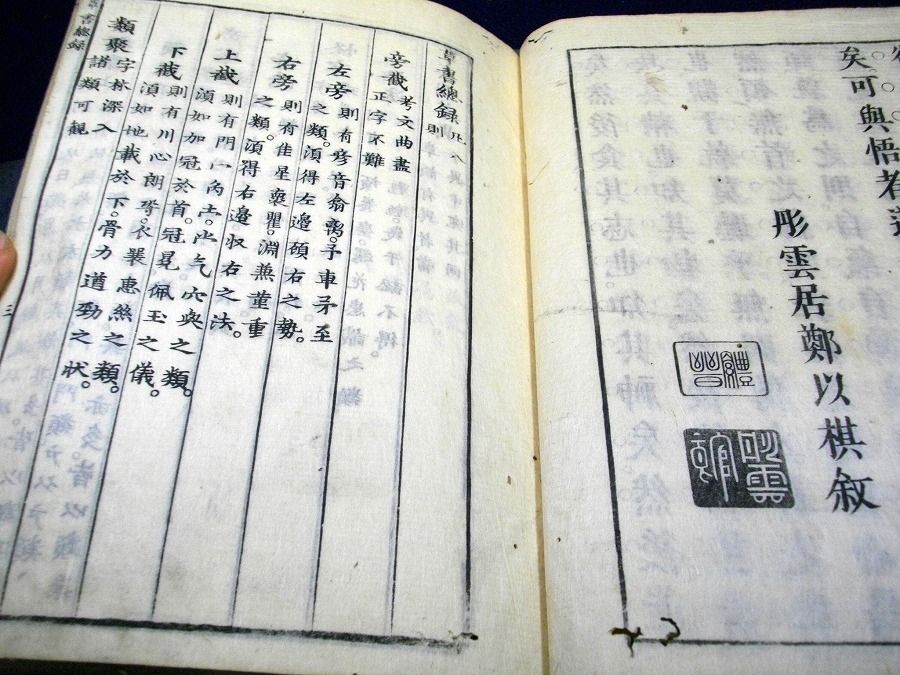 矣可與悟者
彤雲居鄭以棋敘
草書總錄 凡八則
旁截 考文曲盡
正字不難
左旁 則有彥音翕禹。子車矛至
之類。須得左邊碩右之勢。
右旁 則有隹星裒瞿。淵兼堇重
之類。須得右邊収右之法。
上截 則有門宀 气穴與之類。
須如加冠於首。冠冕佩玉之儀。
下截 則有川心朗 衣裴惠然之類。
須如地載於下。骨力遒勁之狀。
類聚 字林深入
諸類可觀
書總錄
三